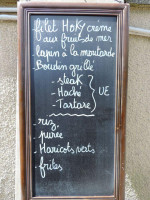 filet HOKY creme
aux fruits de mer
lapin à la moutarde
Boudin grillé
- steak
- Haché
- Tartare
} UE
- riz,
- purée
- Haricots verts
- frites